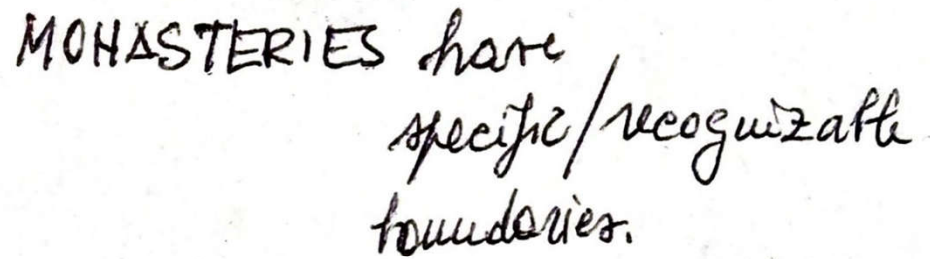 MONASTERIES have
specific/recognizable
boundaries.